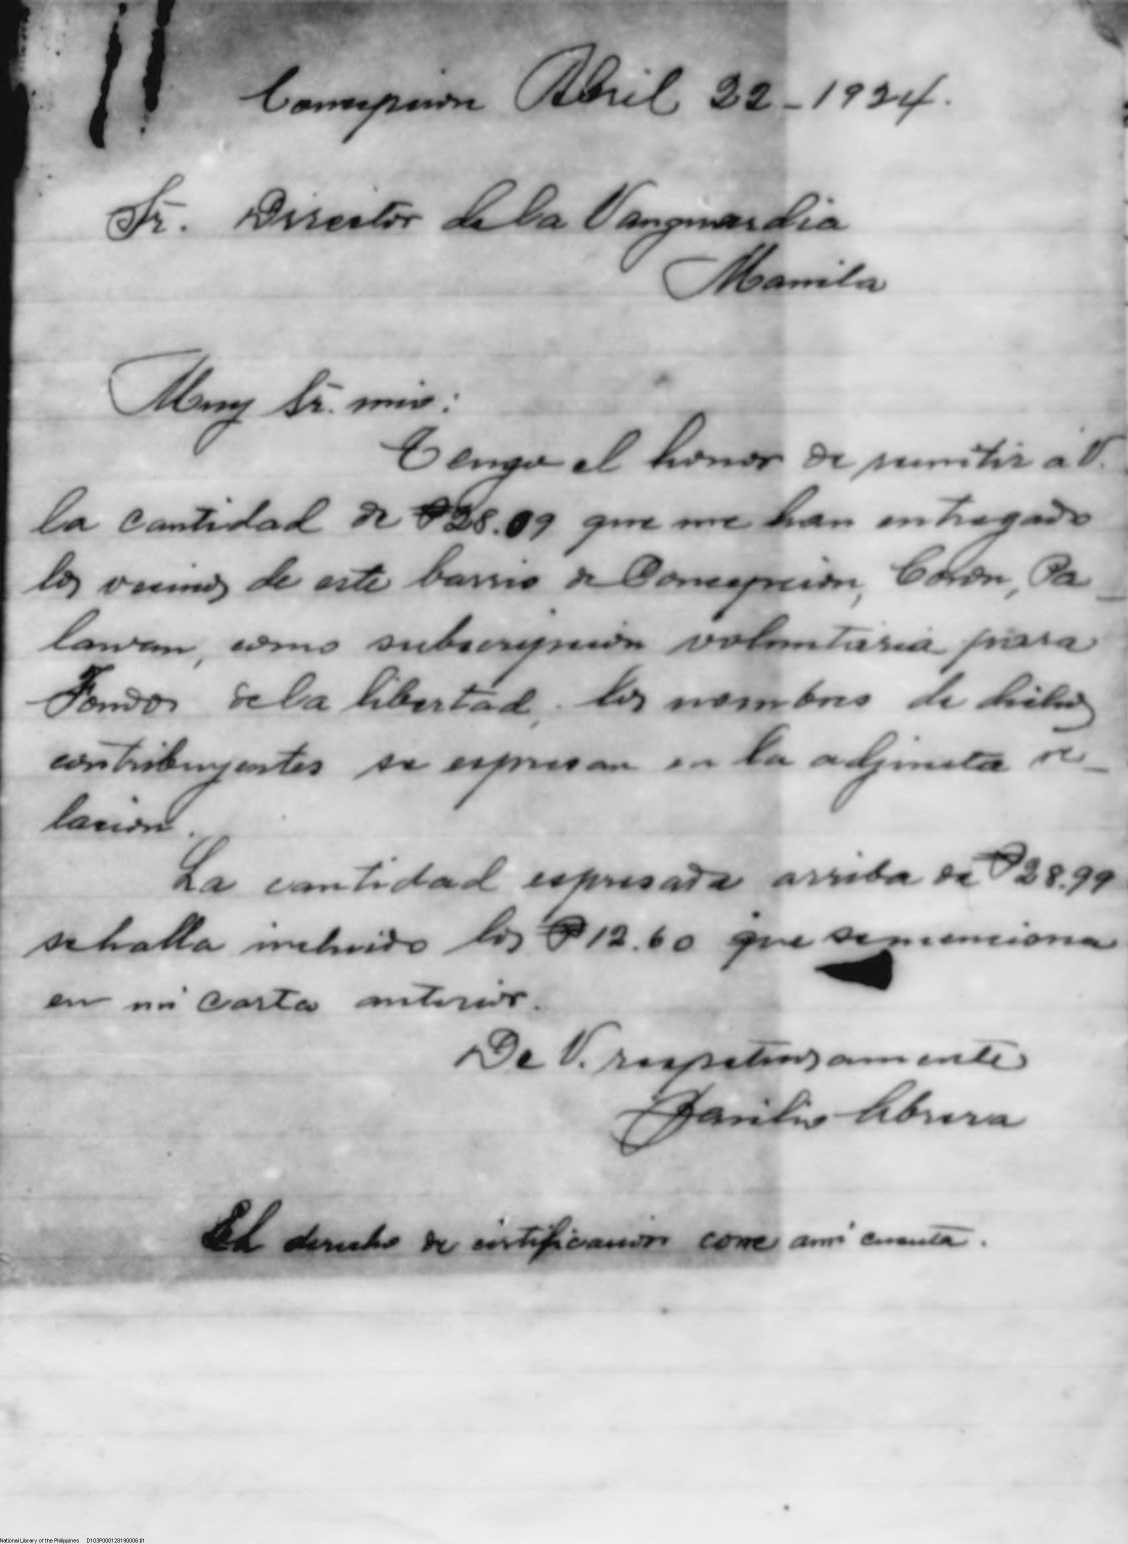 Concepcion Abril 22-1924.
Sr. Director de la Vanguardia
Manila
Muy Sr. mio:
Tengo el honor de remitir á V.
la cantidad de ₱28.09 que me han entregado
los vecinos de este barrio de Concepcion, Coron, Pa_
lawan, como subscripcion voluntaria para
Fondos de la libertad, los nombres de dichos
contribuyentes se espresan en la adjunta re_
lacion.
La cantidad espresada arriba de ₱28.99
se halla incluido los ₱12.60 que se menciona
en mi carta anterior.
De V. respetuosamente
Basilio Abrera
El derecho de certificacion corre a mi cuenta.
National Library of the Philippines